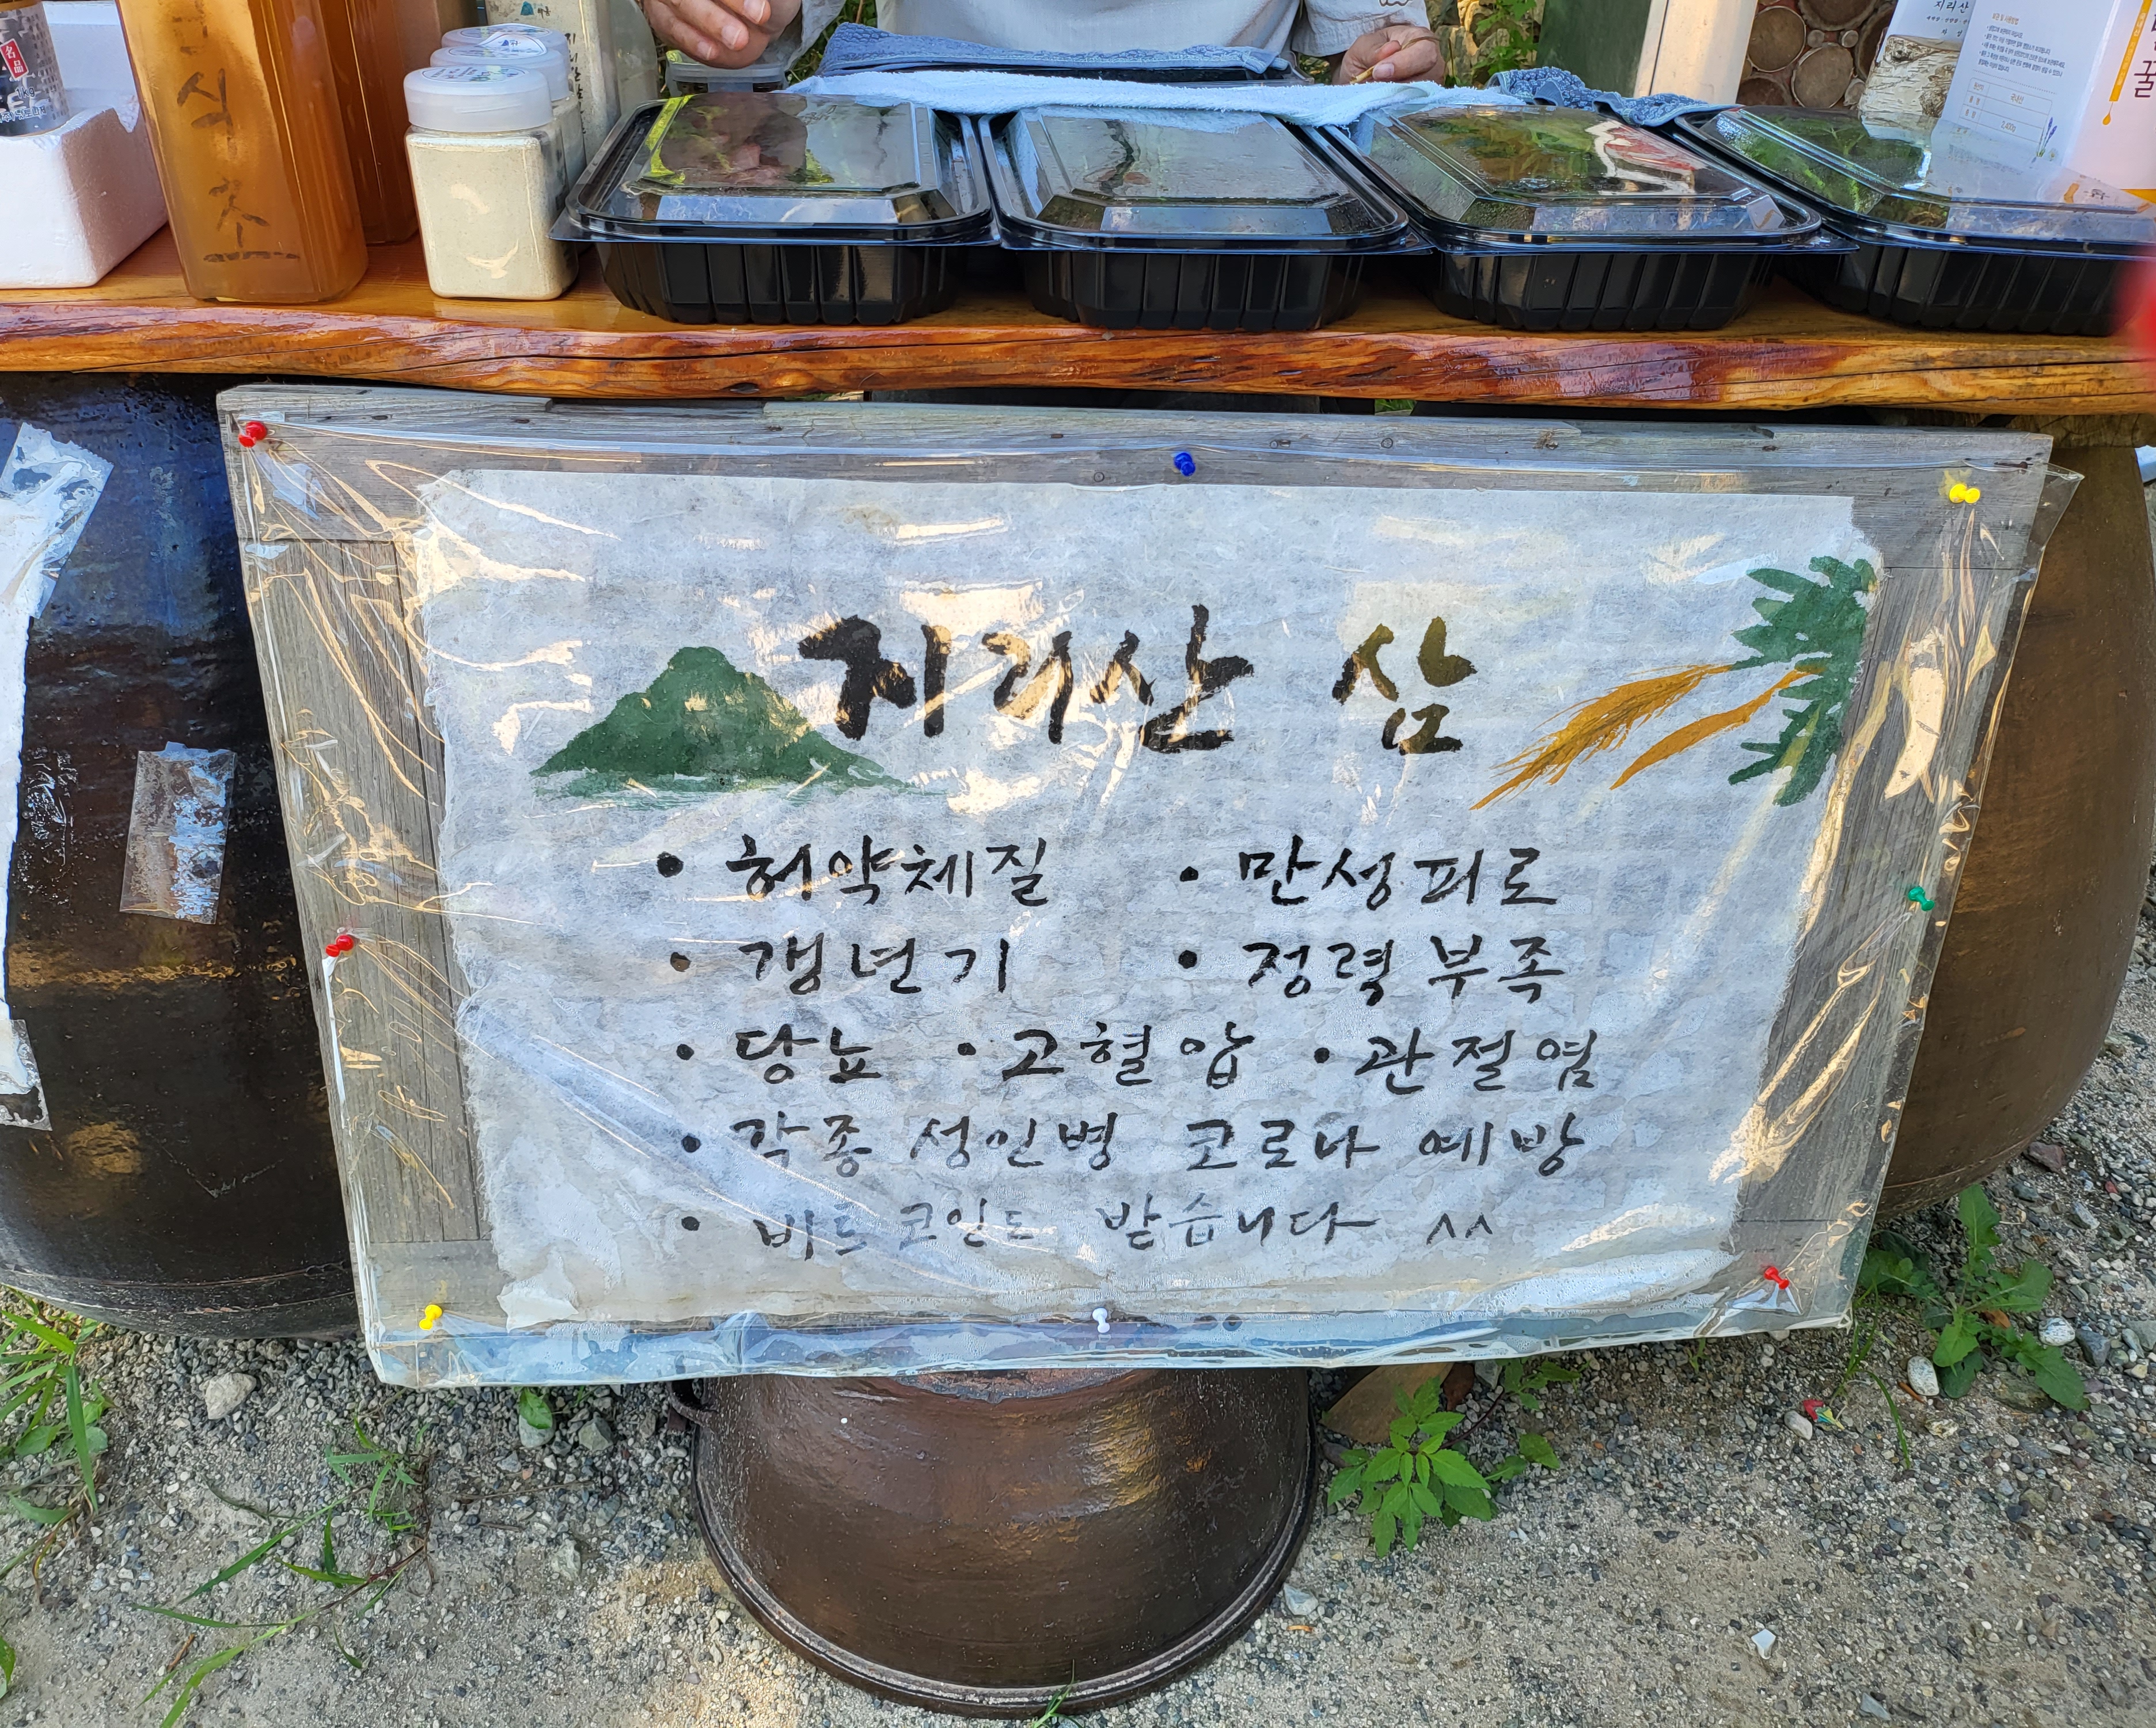 名品
1kg
감식초
지리산
꿀
지리산 삼
• 허약체질 • 만성피로
• 갱년기 • 정력부족
• 당뇨 • 고혈압 • 관절염
• 각종 성인병 코로나 예방
• 비트코인도 받습니다 ^^